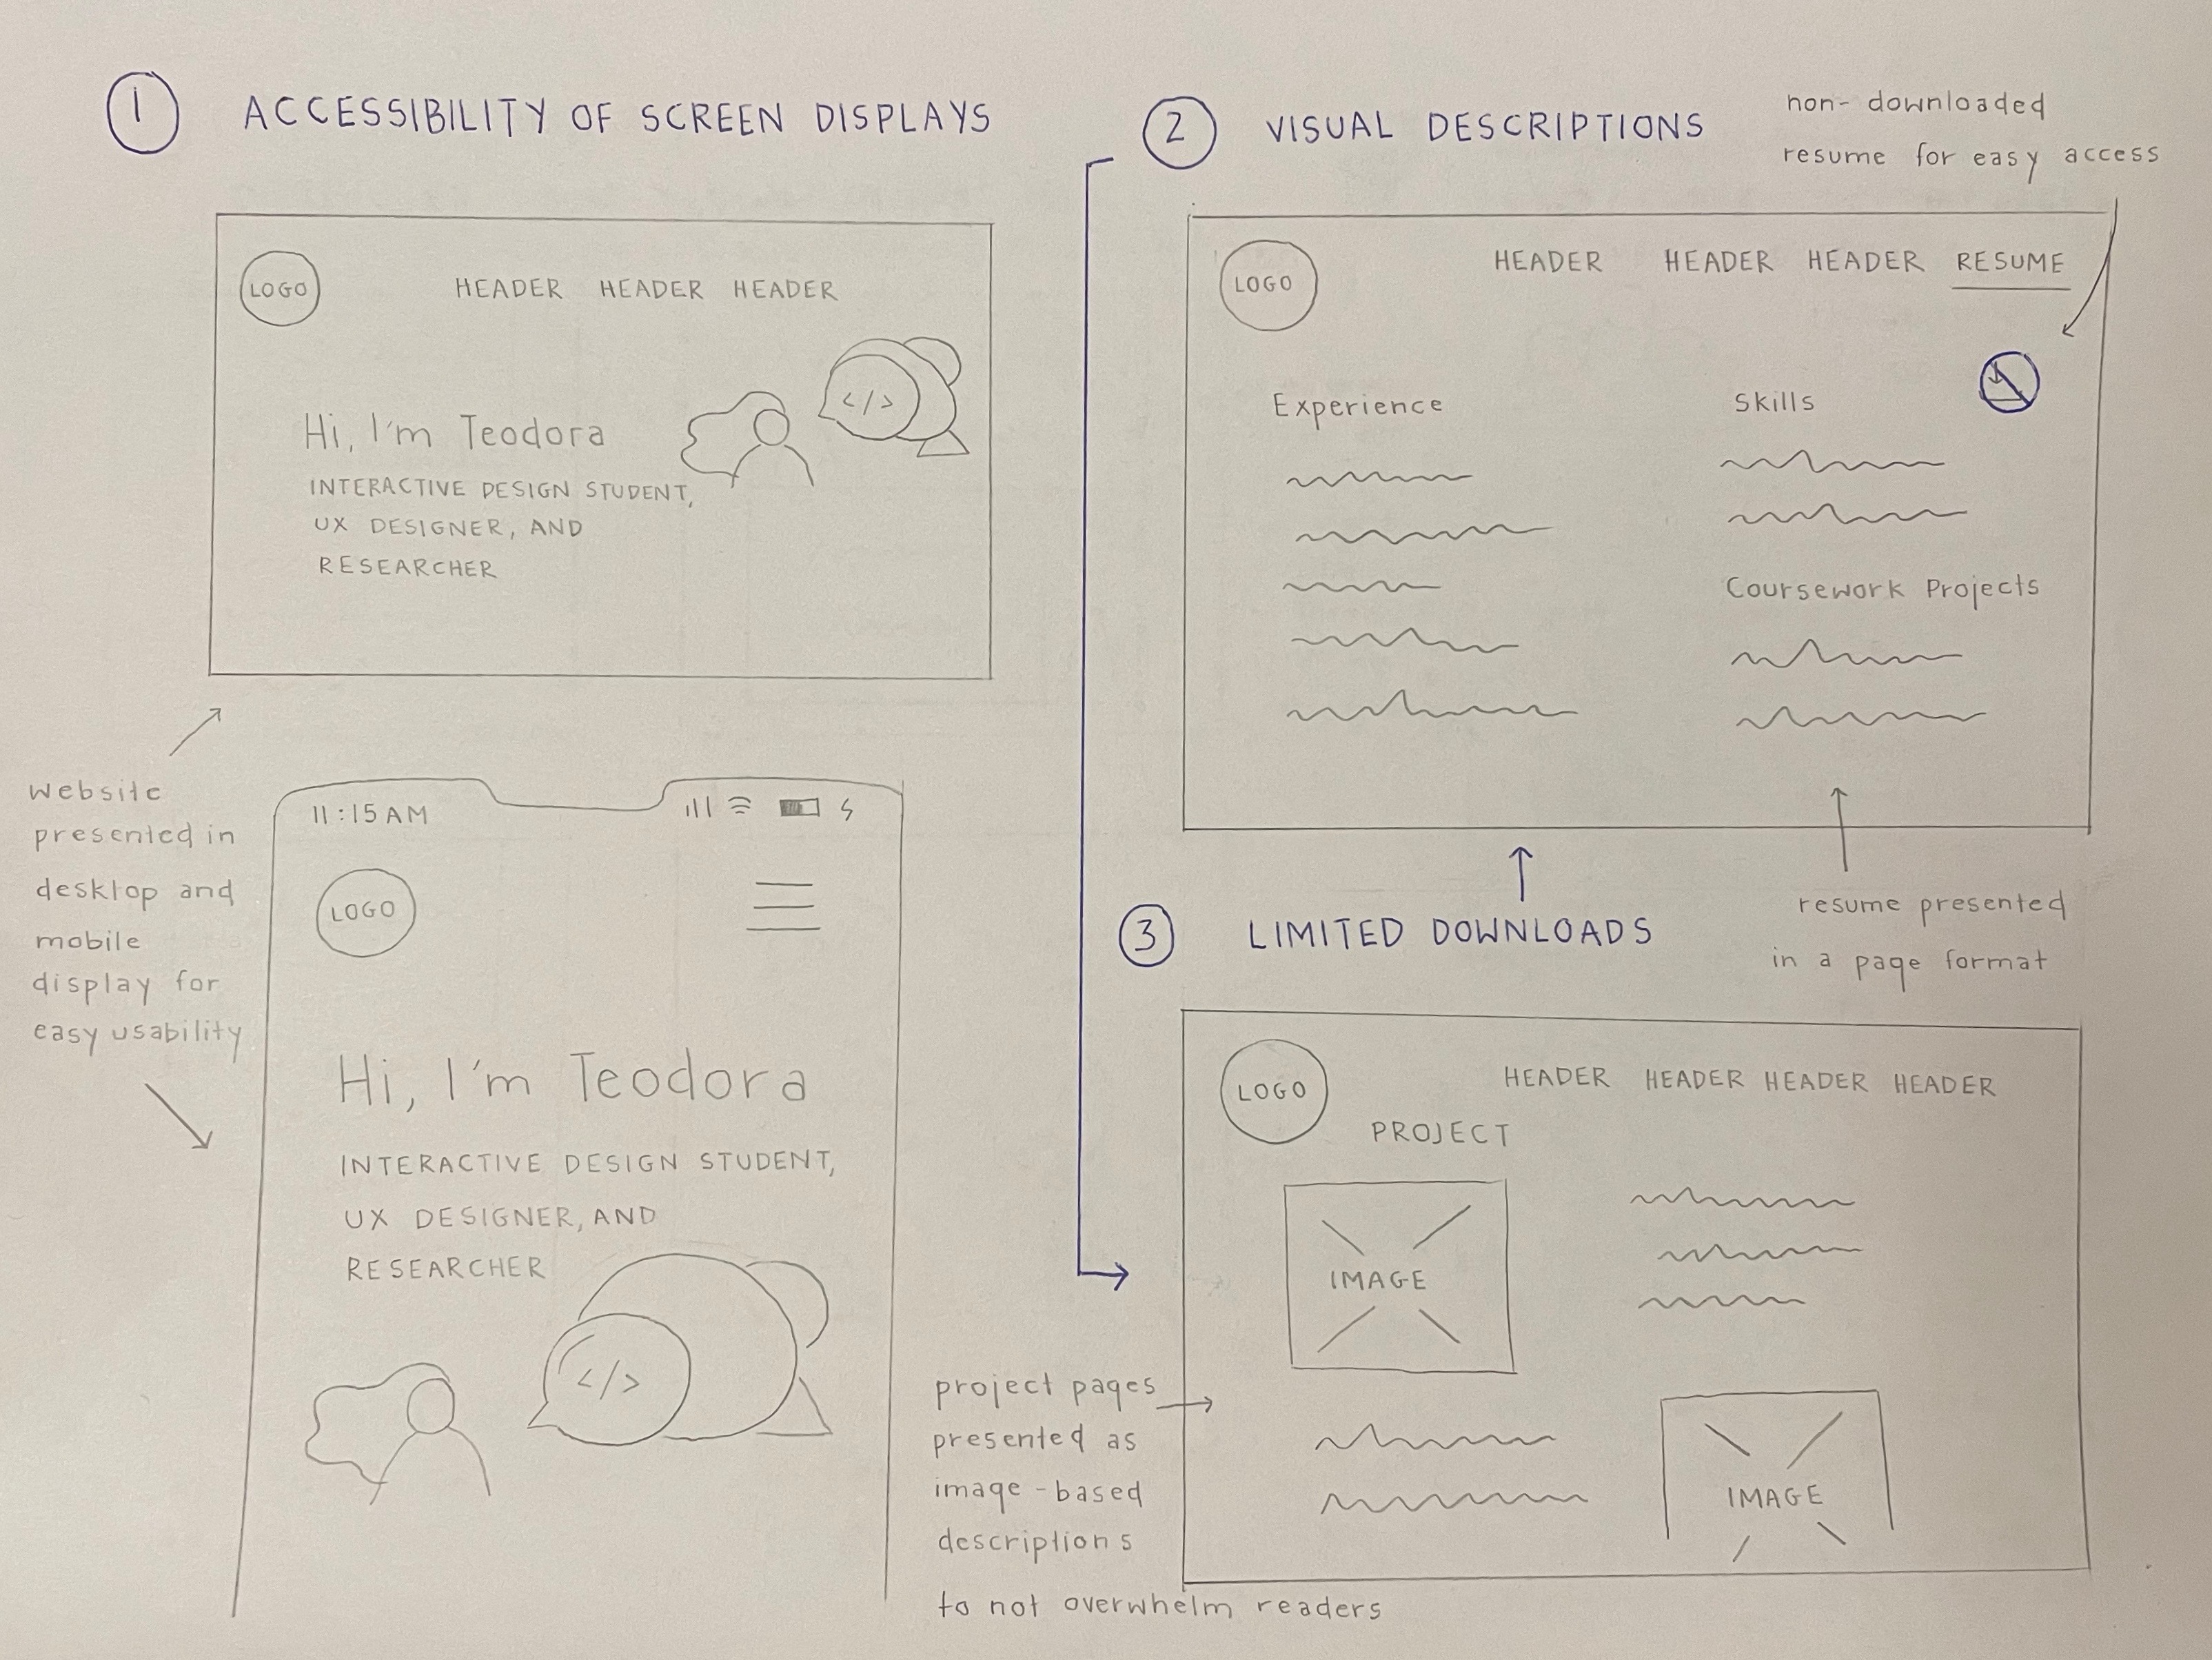 1 ACCESSIBILITY OF SCREEN DISPLAYS
LOGO
HEADER HEADER HEADER
Hi, I'm Teodora
</>
INTERACTIVE DESIGN STUDENT,
UX DESIGNER, AND
RESEARCHER
website
presented in
desktop and
mobile
display for
easy usability
11:15 AM
LOGO
Hi, I'm Teodora
INTERACTIVE DESIGN STUDENT,
UX DESIGNER, AND
RESEARCHER
</>
2 VISUAL DESCRIPTIONS
non-downloaded
resume for easy access
LOGO
HEADER HEADER HEADER RESUME
Experience
Skills
Coursework Projects
resume presented
in a page format
3 LIMITED DOWNLOADS
LOGO
HEADER HEADER HEADER HEADER
PROJECT
IMAGE
IMAGE
project pages
presented as
image-based
descriptions
to not overwhelm readers